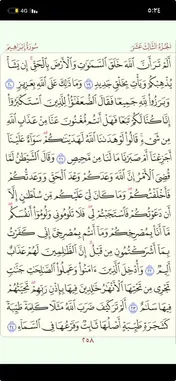 4G
٥:٢٤
الجزء الثالث عشر
سورة إبراهيم
ألم تر أن الله خلق السموات والأرض بالحق إن يشأ
يذهبكم ويأت بخلق جديد ١٩ وما ذلك على الله بعزيز ٢٠
وبرزوا لله جميعا فقال الضعفؤا للذين استكبروا
إنا كنا لكم تبعا فهل أنتم مغنون عنا من عذاب الله
من شيء قالوا لو هدىنا الله لهدينكم سواء علينا
أجزعنا أم صبرنا ما لنا من محيص ٢١ وقال الشيطن لما
قضي الأمر إن الله وعدكم وعد الحق ووعدتكم
فأخلفتكم وما كان لي عليكم من سلطن إلا
أن دعوتكم فاستجبتم لي فلا تلوموني ولوموا أنفسكم
ما أنا بمصرخكم وما أنتم بمصرخي إني كفرت
بما أشركتمون من قبل إن الظلمين لهم عذاب
أليم ٢٢ وأدخل الذين ءامنوا وعملوا الصلحت جنت
تجري من تحتها الأنهر خلدين فيها بإذن ربهم تحيتهم
فيها سلم ٢٣ ألم تر كيف ضرب الله مثلا كلمة طيبة
كشجرة طيبة أصلها ثابت وفرعها في السماء ٢٤
٢٥٨